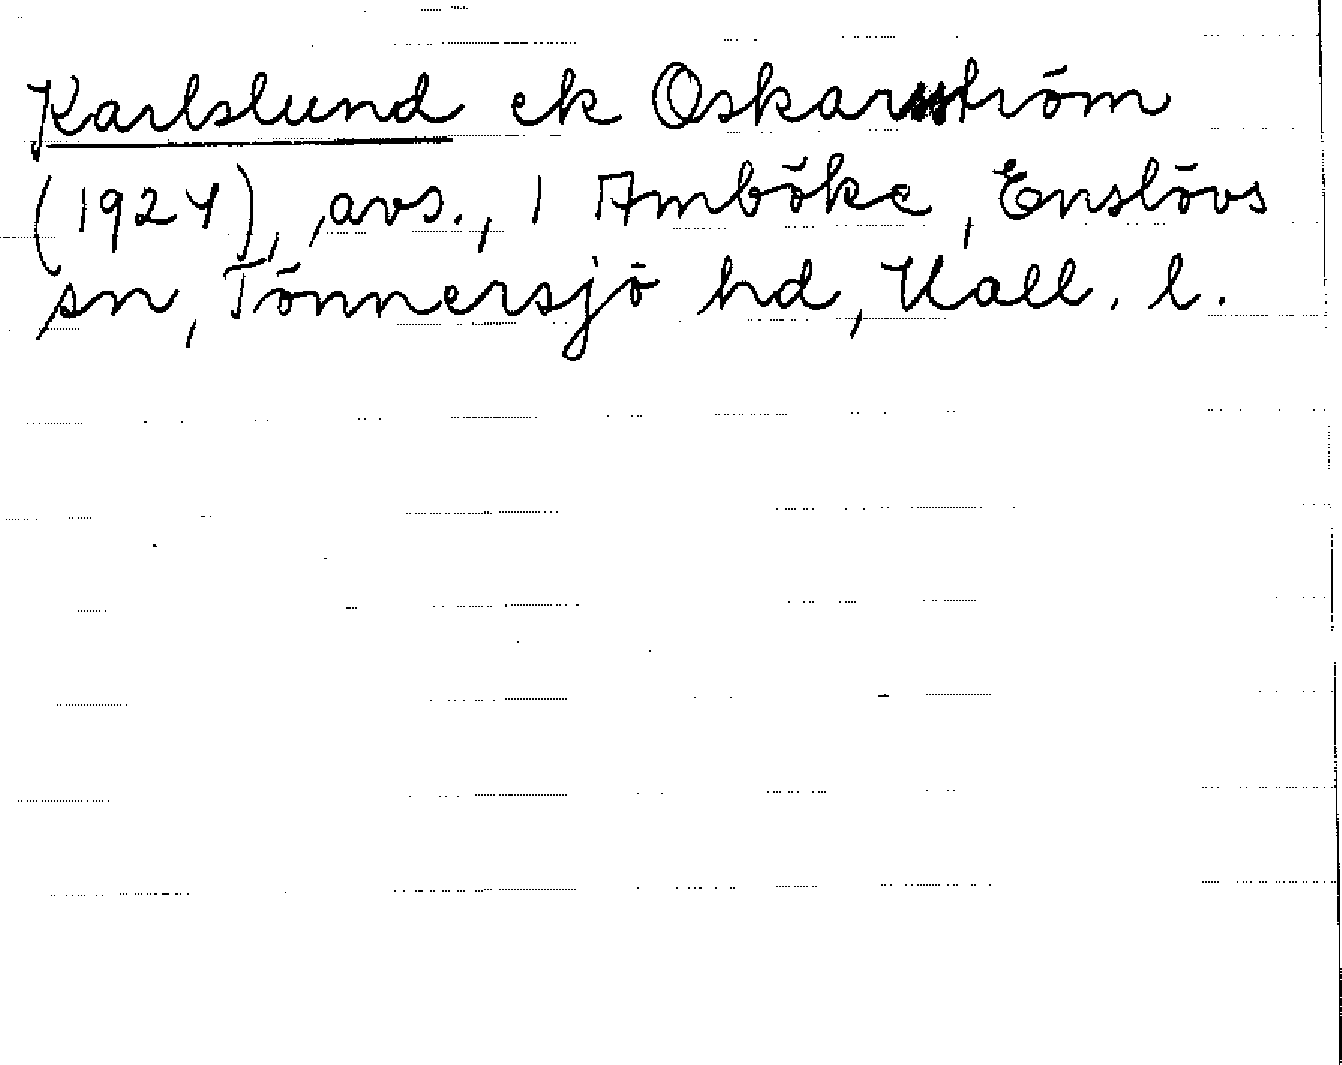 Karlslund ek Oskarström
(1924), avs., 1 Amböke, Enslövs
sn, Tönnersjö hd, Hall. l.